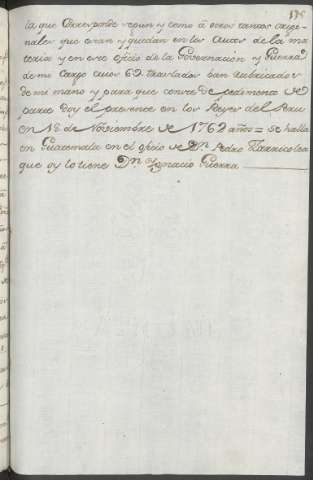 175
la que Corresponde segun y como á otros tantos orixi-
nales que eran y quedan en los Autos de la ma
teria y en este oficio de la Governacion y Guerra
de mi Cargo cuios 62 traslados ban rubricados
de mi mano y para que conste de pedimento de
parte doy el presente en los Reyes del Peru
en 18 de Noviembre de 1762 años = se halla
en Guatemala en el oficio de Dn. Pedro
que oy lo tiene Dn. Ygnacio Guerra